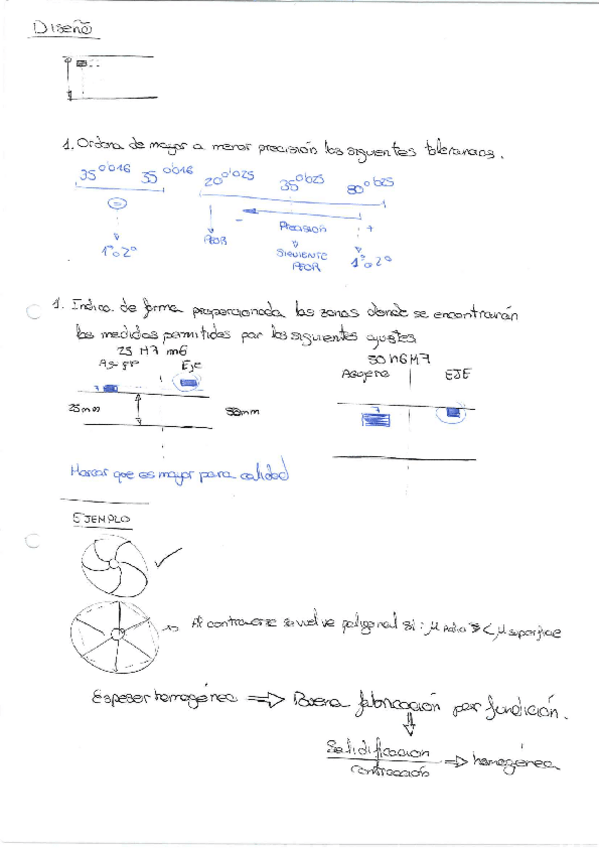 Diseño
1. Ordena de mayor a menor precisión las siguientes tolerancias.
35 0'016 35 0'016 20 0'025 35 0'025 80 0'025
=
- Precisión +
1º o 2º PEOR SIGUIENTE PEOR 1º o 2º
1. Indica de forma proporcionada las zonas donde se encontrarán
las medidas permitidas por los siguientes ajustes
25 H7 m6
Eje
Agujero EJE
7
25mm
7
Marcar que es mayor para calidad
EJEMPLO
→ Al contraerse se vuelve poligonal si: μ radio < μ superficie
Espesor homogéneo ⇒ Buena fabricación por fundición.
Solidificación
contracción ⇒ homogénea